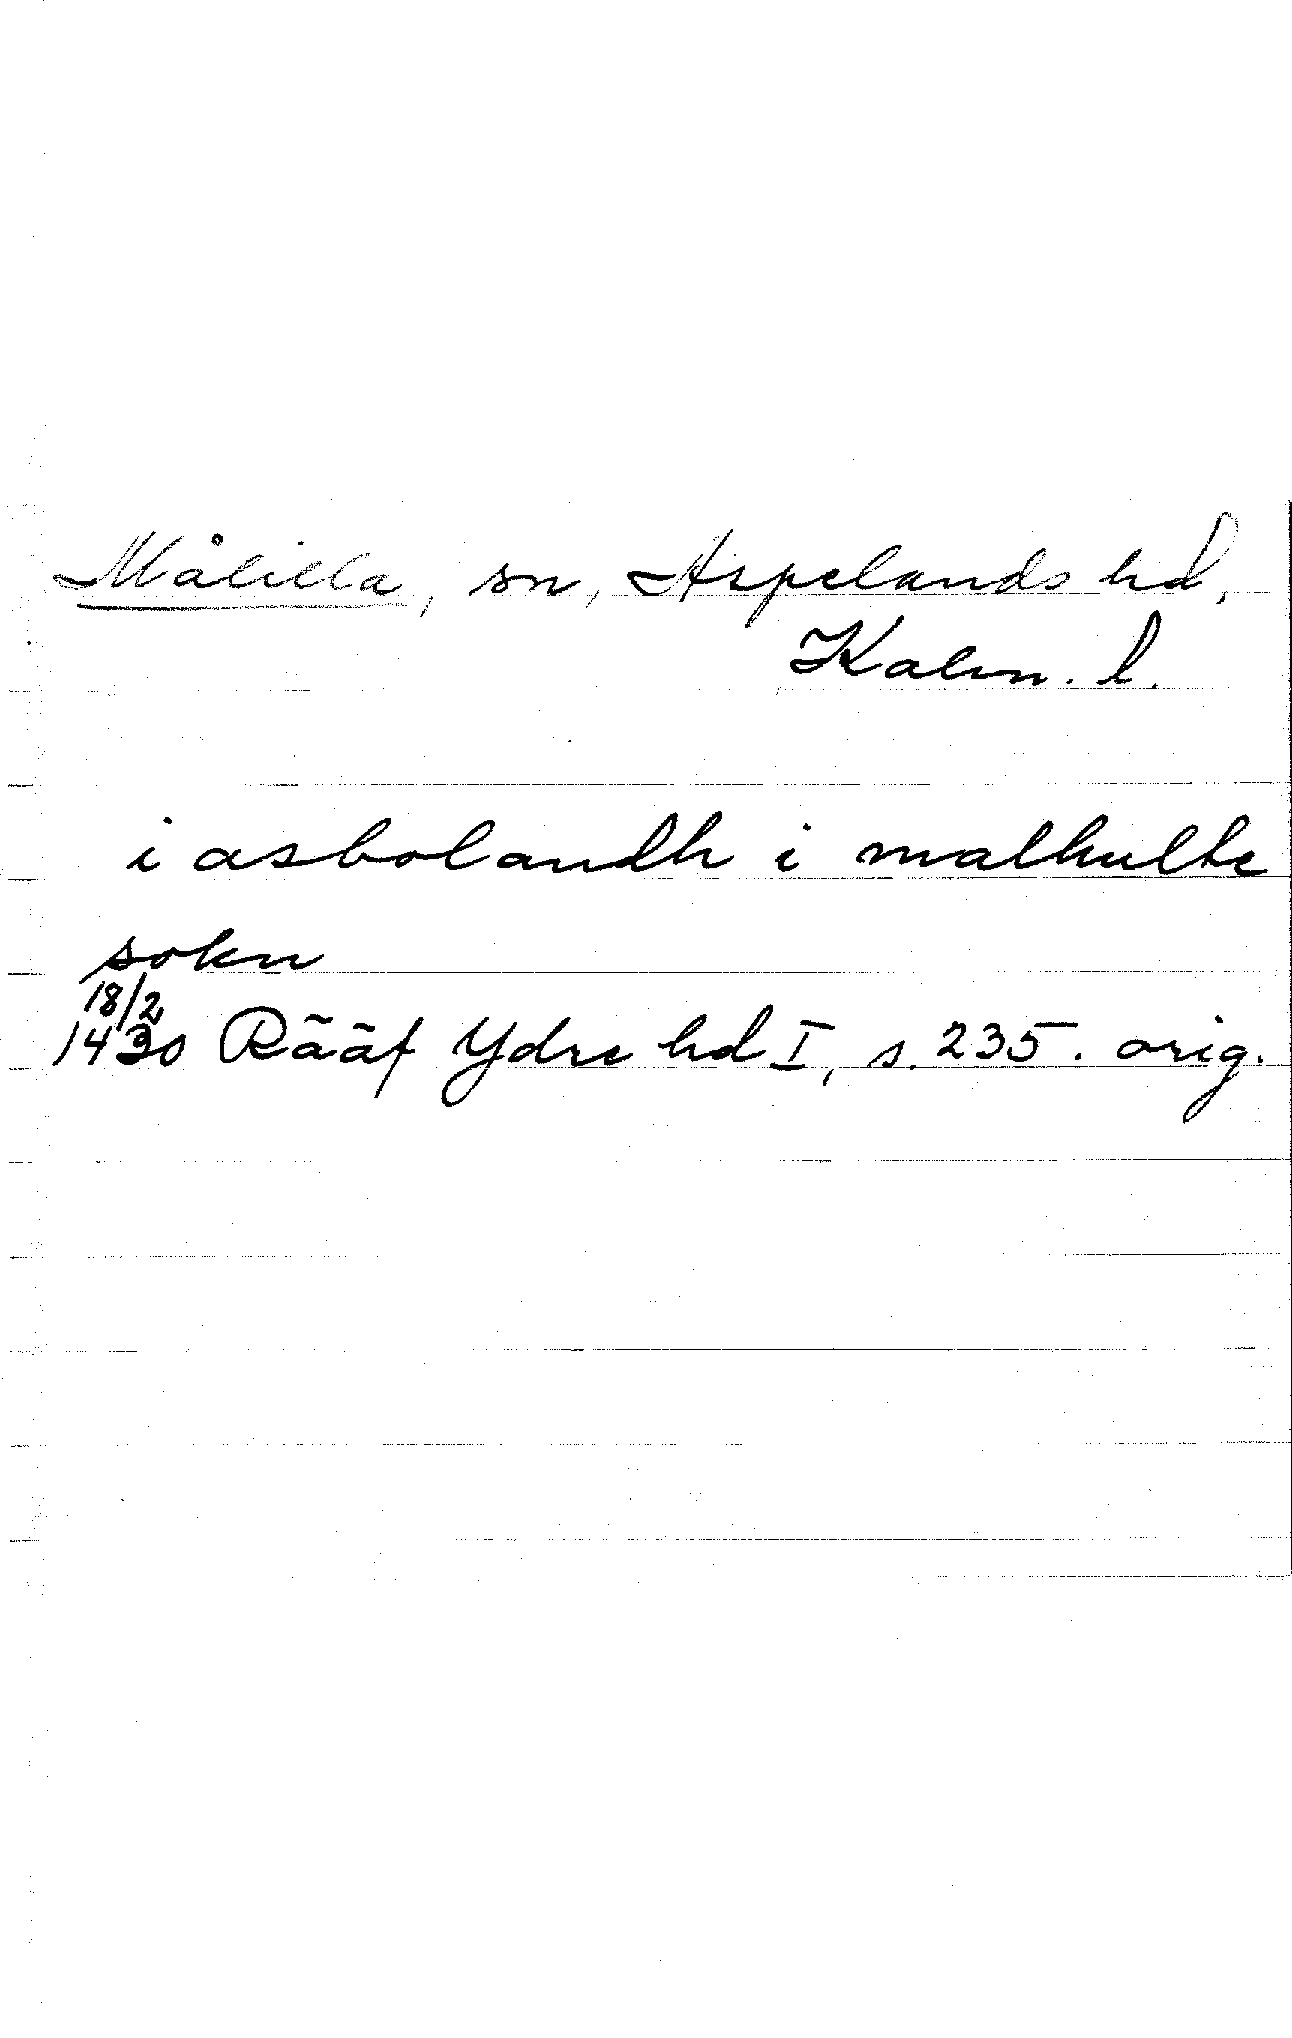 Målilla, sn, Aspelands hd,
Kalm. l.
i asbolandh i malhulte
sokn
18/2
1430 Rääf Ydre hd I, s. 235. orig.